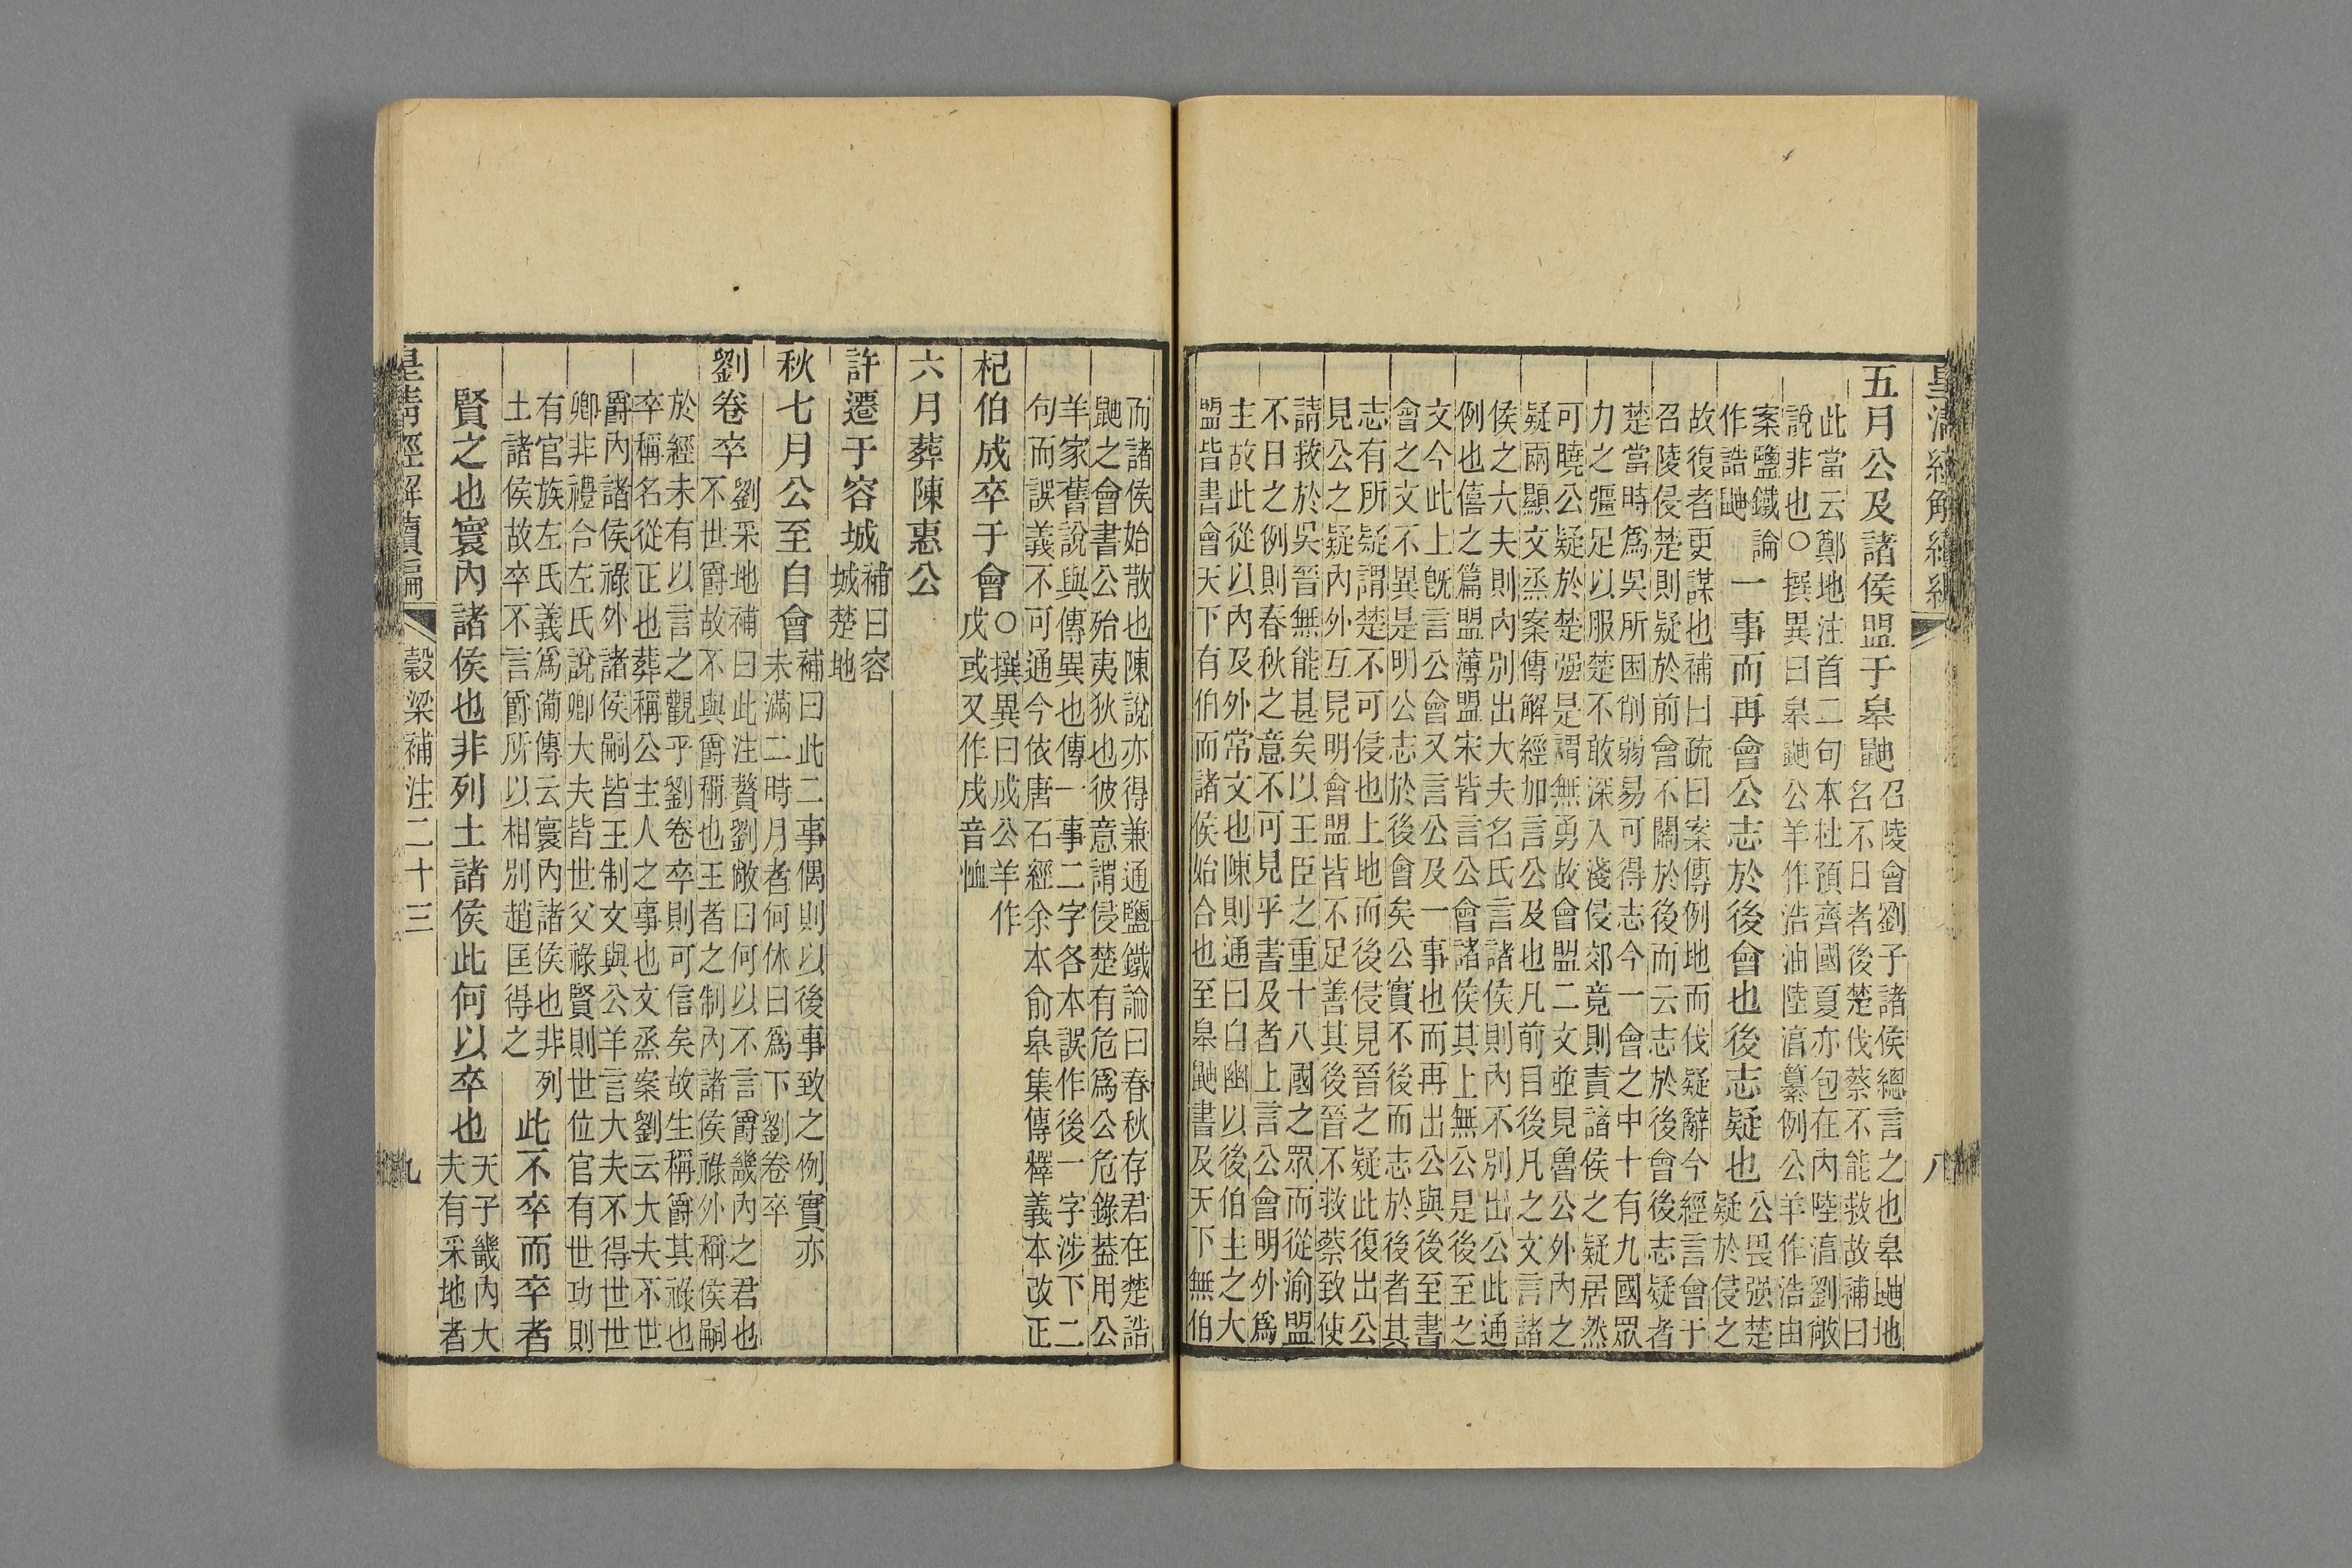 皇清經解續編 八
五月公及諸侯盟于皋鼬
召陵會劉子諸侯總言之也皋鼬地
名不日者後楚伐蔡不能救故補曰
此當云鄭地注首二句本杜預齊國夏亦包在內陸湻劉敞
說非也○撰異曰皋鼬公羊作浩油陸湻纂例公羊作浩由
案鹽鐵論
作誥鼬
一事而再會公志於後會也後志疑也
公畏强楚
疑於侵之
故復者更謀也補曰疏曰案傳例地而伐疑辭今經言會于
召陵侵楚則疑於前會不關於後而云志於後會後志疑者
楚當時爲吳所困削弱易可得志今一會之中十有九國眾
力之彊足以服楚不敢深入淺侵郊竟則責諸侯之疑居然
可曉公疑於楚强是謂無勇故會盟二文並見魯公外內之
疑兩顯文烝案傳解經加言公及也凡前目後凡之文言諸
侯之大夫則內別出大夫名氏言諸侯則內不別出公此通
例也僖之篇盟薄盟宋皆言公會諸侯其上無公是後至之
文今此上旣言公會又言公及一事也而再出公與後至書
會之文不異是明公志於後會矣公實不後而志於後者其
志有所疑謂楚不可侵也上地而後侵見晉之疑此復出公
見公之疑內外互見明會盟皆不足善其後晉不救蔡致使
請救於吳晉無能甚矣以王臣之重十八國之眾而從渝盟
不日之例則春秋之意不可見乎書及者上言公會明外爲
主故此從以內及外常文也陳則通曰自幽以後伯主之大
盟皆書會天下有伯而諸侯始合也至皋鼬書及天下無伯
而諸侯始散也陳說亦得兼通鹽鐵論曰春秋存君在楚誥
鼬之會書公殆夷狄也彼意謂侵楚有危爲公危錄葢用公
羊家舊說與傳異也傳一事二字各本誤作後一字涉下二
句而誤義不可通今依唐石經余本俞皋集傳釋義本改正
杞伯成卒于會
○撰異曰成公羊作
戊或又作戌音恤
六月葬陳惠公
許遷于容城
補曰容
城楚地
秋七月公至自會
補曰此二事偶則以後事致之例實亦
未滿二時月者何休曰爲下劉卷卒
劉卷卒
劉采地補曰此注贅劉敞曰何以不言爵畿內之君也
不世爵故不與爵稱也王者之制內諸侯祿外稱侯嗣
於經未有以言之觀乎劉卷卒則可信矣故生稱爵其祿也
卒稱名從正也葬稱公主人之事也文烝案劉云大夫不世
爵內諸侯祿外諸侯嗣皆王制文與公羊言大夫不得世世
卿非禮合左氏說卿大夫皆世父祿賢則世位官有世功則
有官族左氏義爲備傳云寰內諸侯也非列
土諸侯故卒不言爵所以相別趙匡得之
此不卒而卒者
賢之也寰內諸侯也非列土諸侯此何以卒也
天子畿內大
夫有采地者
皇清經解續編 穀梁補注二十三 九